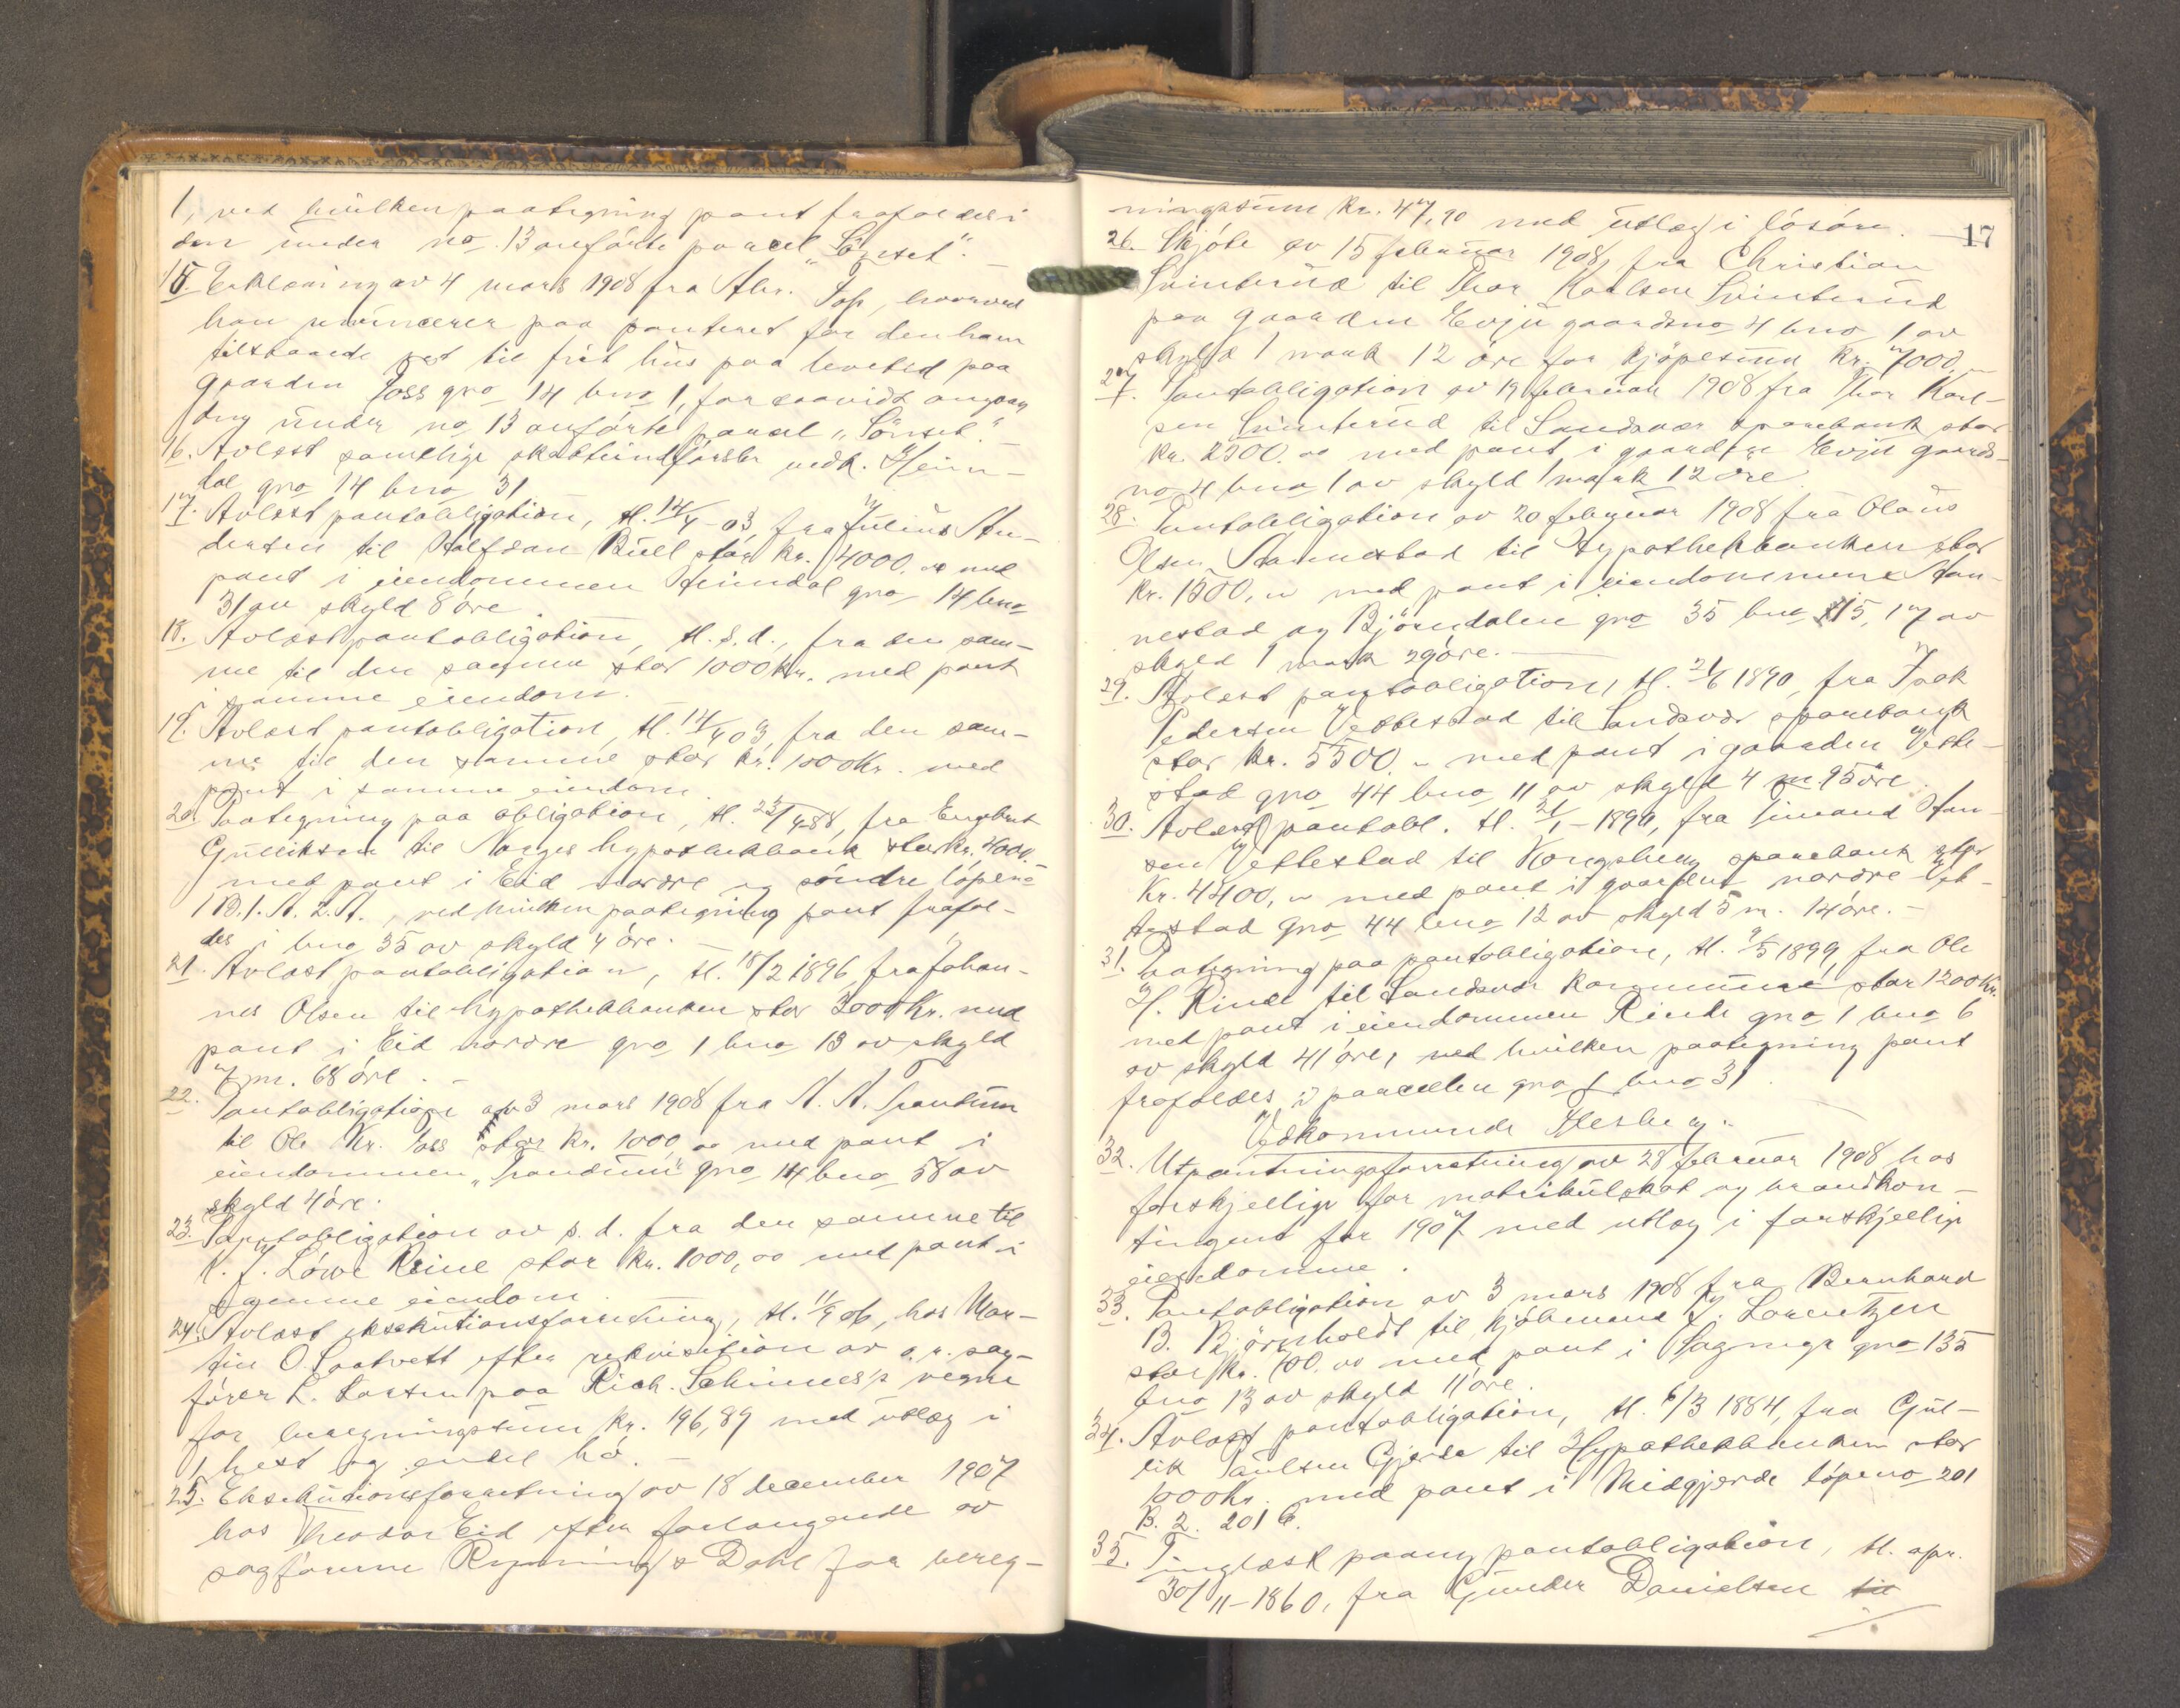 1, ved hvilken paategning pant frafaldes i
den under no. 13 anførte parcel „Sönset".
15. Erklæring av 4 mars 1908 fra Abr. Tos, hvorved
han renuncerer paa panteret for den ham
tilstaaede ret til frit hus paa levetid paa
gaarden Foss gno 14 bno 1, forsaavidt angaar
den under no 13 anførte parcel „Sönset."
16. Avlæst samtlige skadteindførsler vedk. Heim-
dal gno 14 bno 31
17. Avlæst pantobligation, tl. 14/4-03 fra Julius An-
dersen til Halfdan Bull stor kr. 4000.00 med
pant i eiendommen Heimdal gno 14 bno
31 av skyld 8 øre.
18. Avlæst pantobligation, tl. s.d., fra den sam-
me til den samme stor 1000 Kr. med pant
i samme eiendom.
19. Avlæst pantobligation, tl. 14/4 03, fra den sam-
me til den samme stor kr. 1000 Kr. med
pant i samme eiendom.
20. Paategning paa obligation, tl. 23/4-88, fra Engebret
Gulliksen til Norges hypothekbank stor kr. 4000.-
med pant i Eid nordre og søndre løpeno
1 B. 1. A. 2. A., ved hvilken paategning pant frafal-
des i bno 35 av skyld 4 øre.
21. Avlæst pantobligation, tl. 18/2 1896, fra Johan-
nes Olsen til hypothekbanken stor 3000 Kr. med
pant i Eid nordre gno 1 bno 13 av skyld
7 m. 68 øre.
22. Pantobligation av 3 mars 1908 fra A. A. Trandum
til Ole Kr. Foss stor kr. 1000,00 med pant i
eiendommen „Trandum" gno 14 bno 58 av
skyld 4 øre.
23. Pantobligation av s. d. fra den samme til
K. J. Löwe Reine stor kr. 1000,00 med pant i
samme eiendom.
24. Avlæst eksekutionsforretning, tl. 11/9 06, hos Mar-
tin O. Saatvett efter rekvisition av o. r. sag-
fører L. Larsen paa Rich. Schinnes's vegne
for beregningssum kr. 196,89 med utlæg i
1 hest og endel hø.
25. Eksekutionsforretning av 18 december 1907
hos Theodor Eid efter forlangende av
sagførerne Rynning & Dahl for bereg-
17
ningssum kr. 47,90 med utlæg i løsøre.
26. Skjøte av 15 februar 1908, fra Christian
Svinterud til Thor Karlsen Svinterud
paa gaarden Evju gaardsno 4 bno 1 av
skyld 1 mark 12 øre for kjøpesum kr. 7000.
27. Pantobligation av 19 februar 1908 fra Thor Karl-
sen Svinterud til Sandsvær sparebank stor
kr. 2500.00 med pant i gaarden Evju gaards-
no 4 bno 1 av skyld 1 mark 12 øre.
28. Pantobligation av 20 februar 1908 fra Olaus
Olsen Stannestad til Hypothekbanken stor
kr. 1500,00 med pant i eiendommene Stan-
nestad og Bjørndalen gno 35 bno 15, 17 av
skyld 1 mark 29 øre.
29. Avlæst pantobligation, tl. 21/6 1890, fra Isak
Pedersen Vettestad til Sandsvær sparebank
stor kr. 5500.- med pant i gaarden Vette-
stad gno 44 bno 11 av skyld 4 m 95 øre.
30. Avlæst pantobl. tl. 21/1-1890, fra Simand Han-
sen Vettestad til Kongsberg sparebank stor
Kr. 4400,- med pant i gaarden nordre Vet-
testad gno 44 bno 12 av skyld 5 m. 14 øre.-
31. Paategning paa pantobligation, tl. 9/5 1899, fra Ole
H. Rinde til Sandsvær kommune stor 1200 kr.
med pant i eiendommen Rinde gno 1 bno 6
av skyld 41 øre, ved hvilken paategning pant
frafaldes i parcellen gno 1 bno 31.
Vedkommende Flesberg.
32. Utpantningsforretning av 28 februar 1908 hos
forskjellige for matrikulskat og brandkon-
tingent for 1907 med utlæg i forskjellige
eiendomme.
33. Pantobligation av 3 mars 1908 fra Bernhard
B. Bjørnholdt til kjøbmand J. Lorentzen
stor kr. 700.00 med pant i Hagenga gno 135
bno 13 av skyld 11 øre.
34. Avlæst pantobligation, tl. 6/3 1884, fra Gul-
lik Paulsen Gjerde til Hypothekbanken stor
1000 kr. med pant i Midgjerde løpeno 201
B. 2. 201 C.
35. Tinglæst paany pantobligation, tl. opr.
30/11-1860, fra Gunder Danielsen til